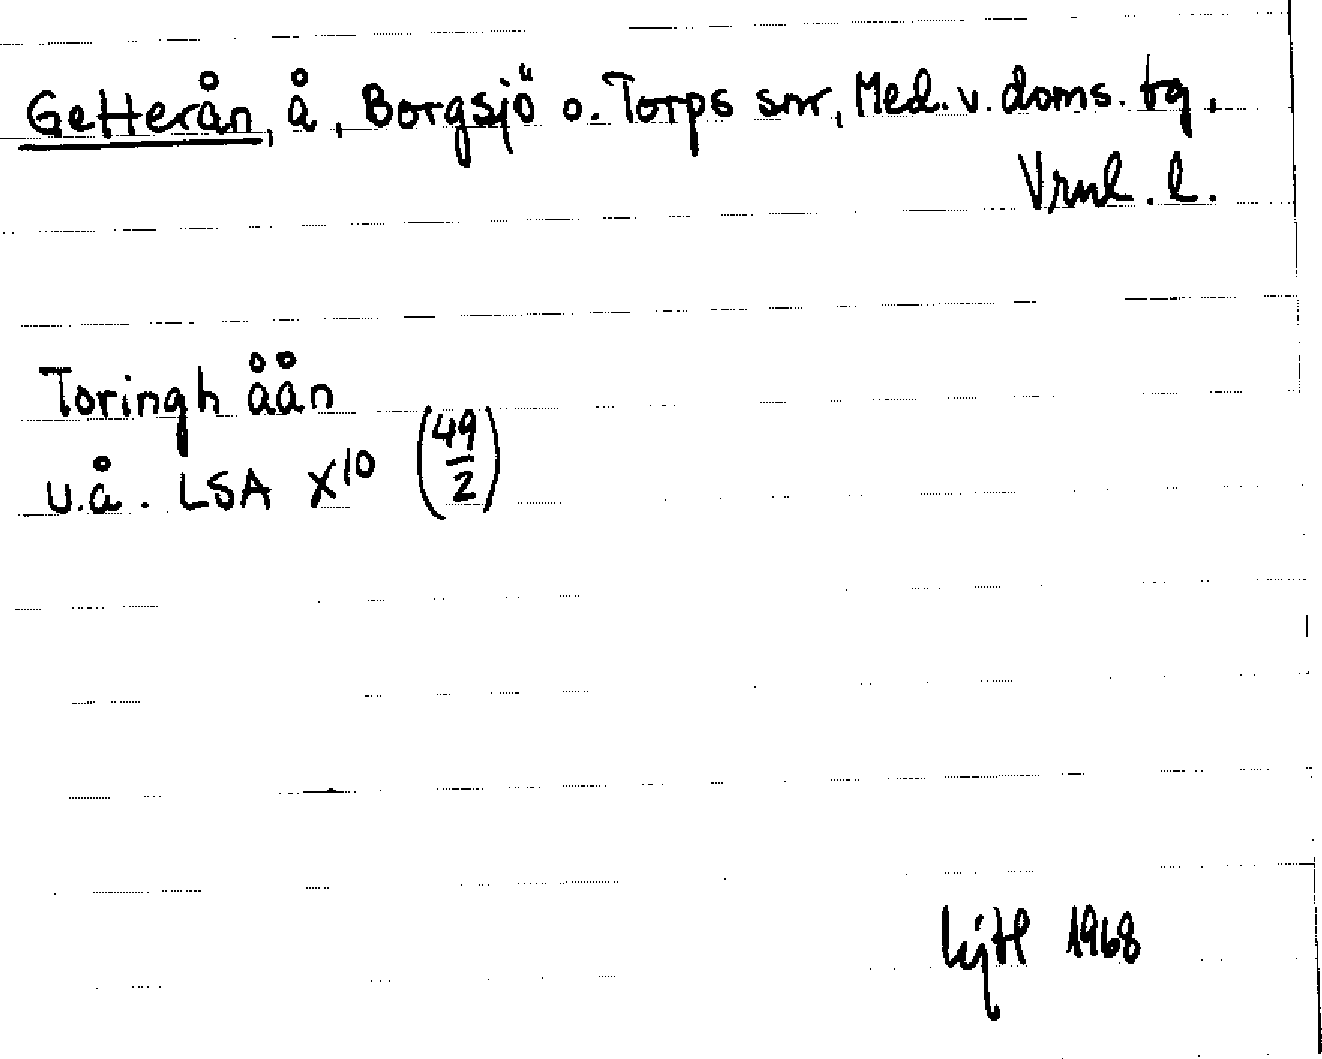 Getterån, å, Borgsjö o. Torps snr, Med. v. doms. tg.
Vrnl. l.
Toringh åån
u.å. LSA X¹⁰ (49/2)
1968